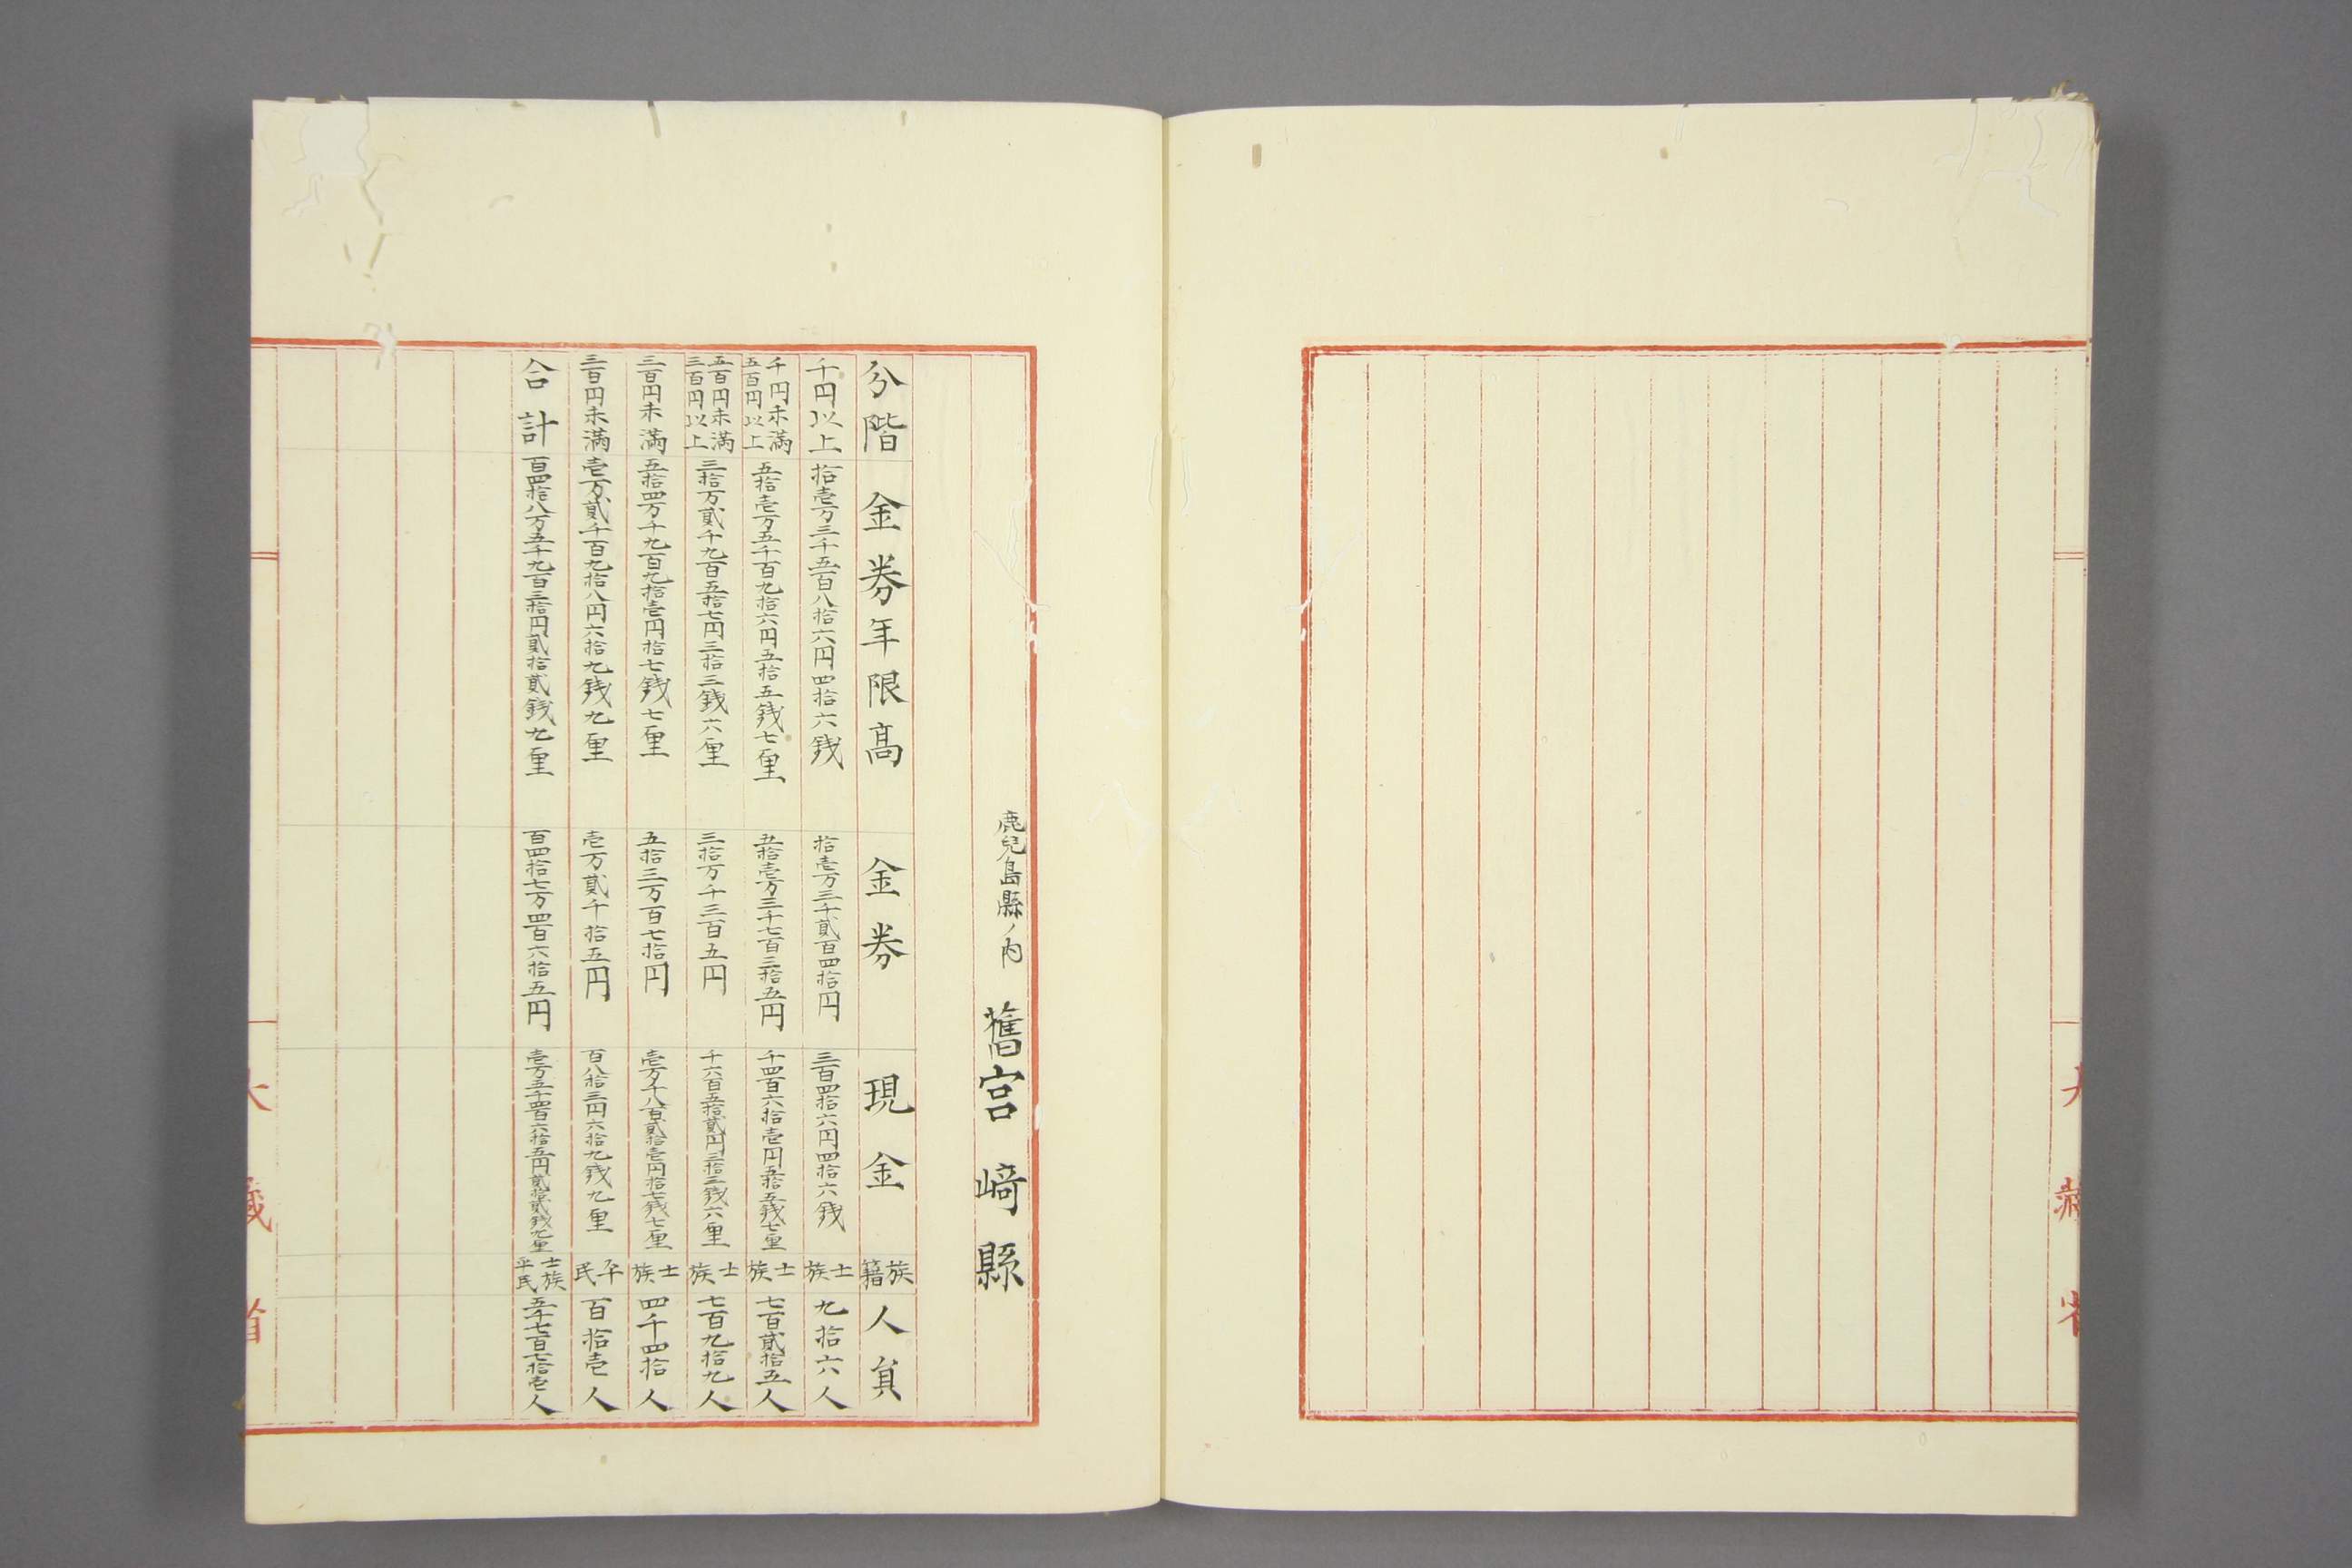 鹿兒島縣ノ内 舊宮﨑縣
分階 金券年限高 金券 現金 族籍 人員
千円以上 拾壱万三千五百八拾六円四拾六銭 拾壱万三千貳百四拾円 三百四拾六円四拾六銭 士族 九拾六人
千円未満五百円以上 五拾壱万五千百九拾六円五拾五銭七厘 五拾壱万三千七百三拾五円 千四百六拾壱円五拾五銭七厘 士族 七百貳拾五人
五百円未満三百円以上 三拾万貳千九百五拾七円三拾三銭六厘 三拾万千三百五円 千六百五拾貳円三拾三銭六厘 士族 七百九拾九人
三百円未満 五拾四万千九百九拾壱円拾七銭七厘 五拾三万百七拾円 壱万千八百貳拾壱円拾七銭七厘 士族 四千四拾人
三百円未満 壱万貳千百九拾八円六拾九銭九厘 壱万貳千拾五円 百八拾三円六拾九銭九厘 平民 百拾壱人
合計 百四拾八万五千九百三拾円貳拾貳銭九厘 百四拾七万四百六拾五円 壱万五千四百六拾五円貳拾貳銭九厘 士族平民 五千七百七拾壱人
大藏省